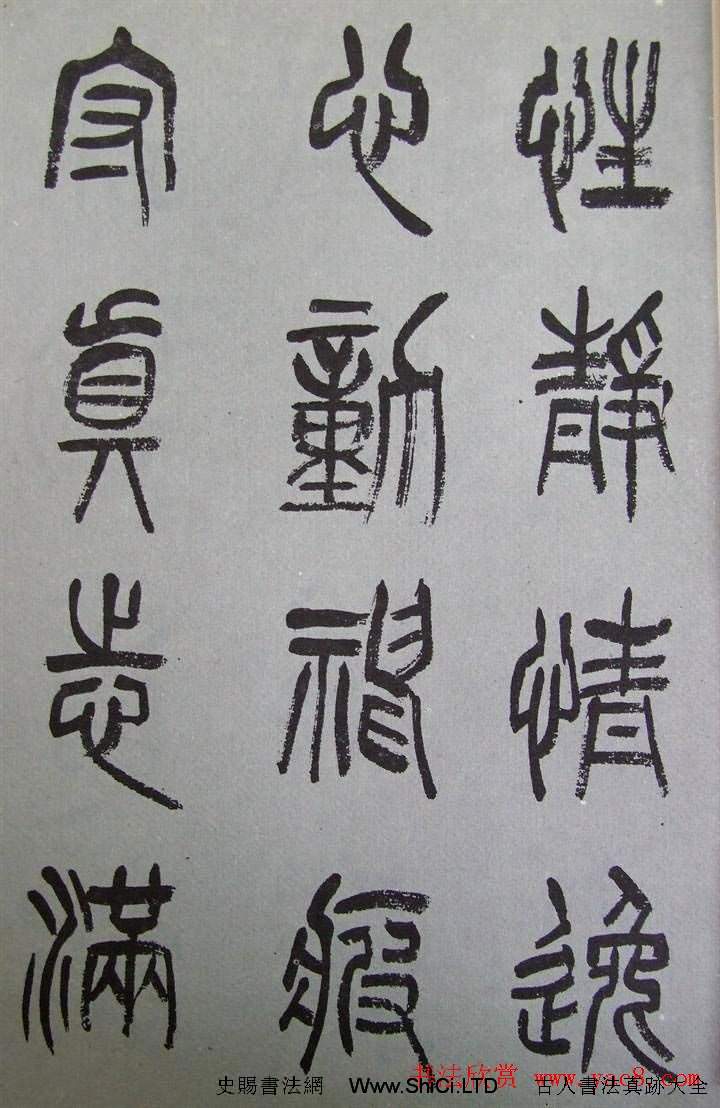 性靜情逸
心動神疲
守真志滿
书法欣赏 www.yac8.com
史賜書法網 Www.ShiCi.LTD 古人書法真跡大全